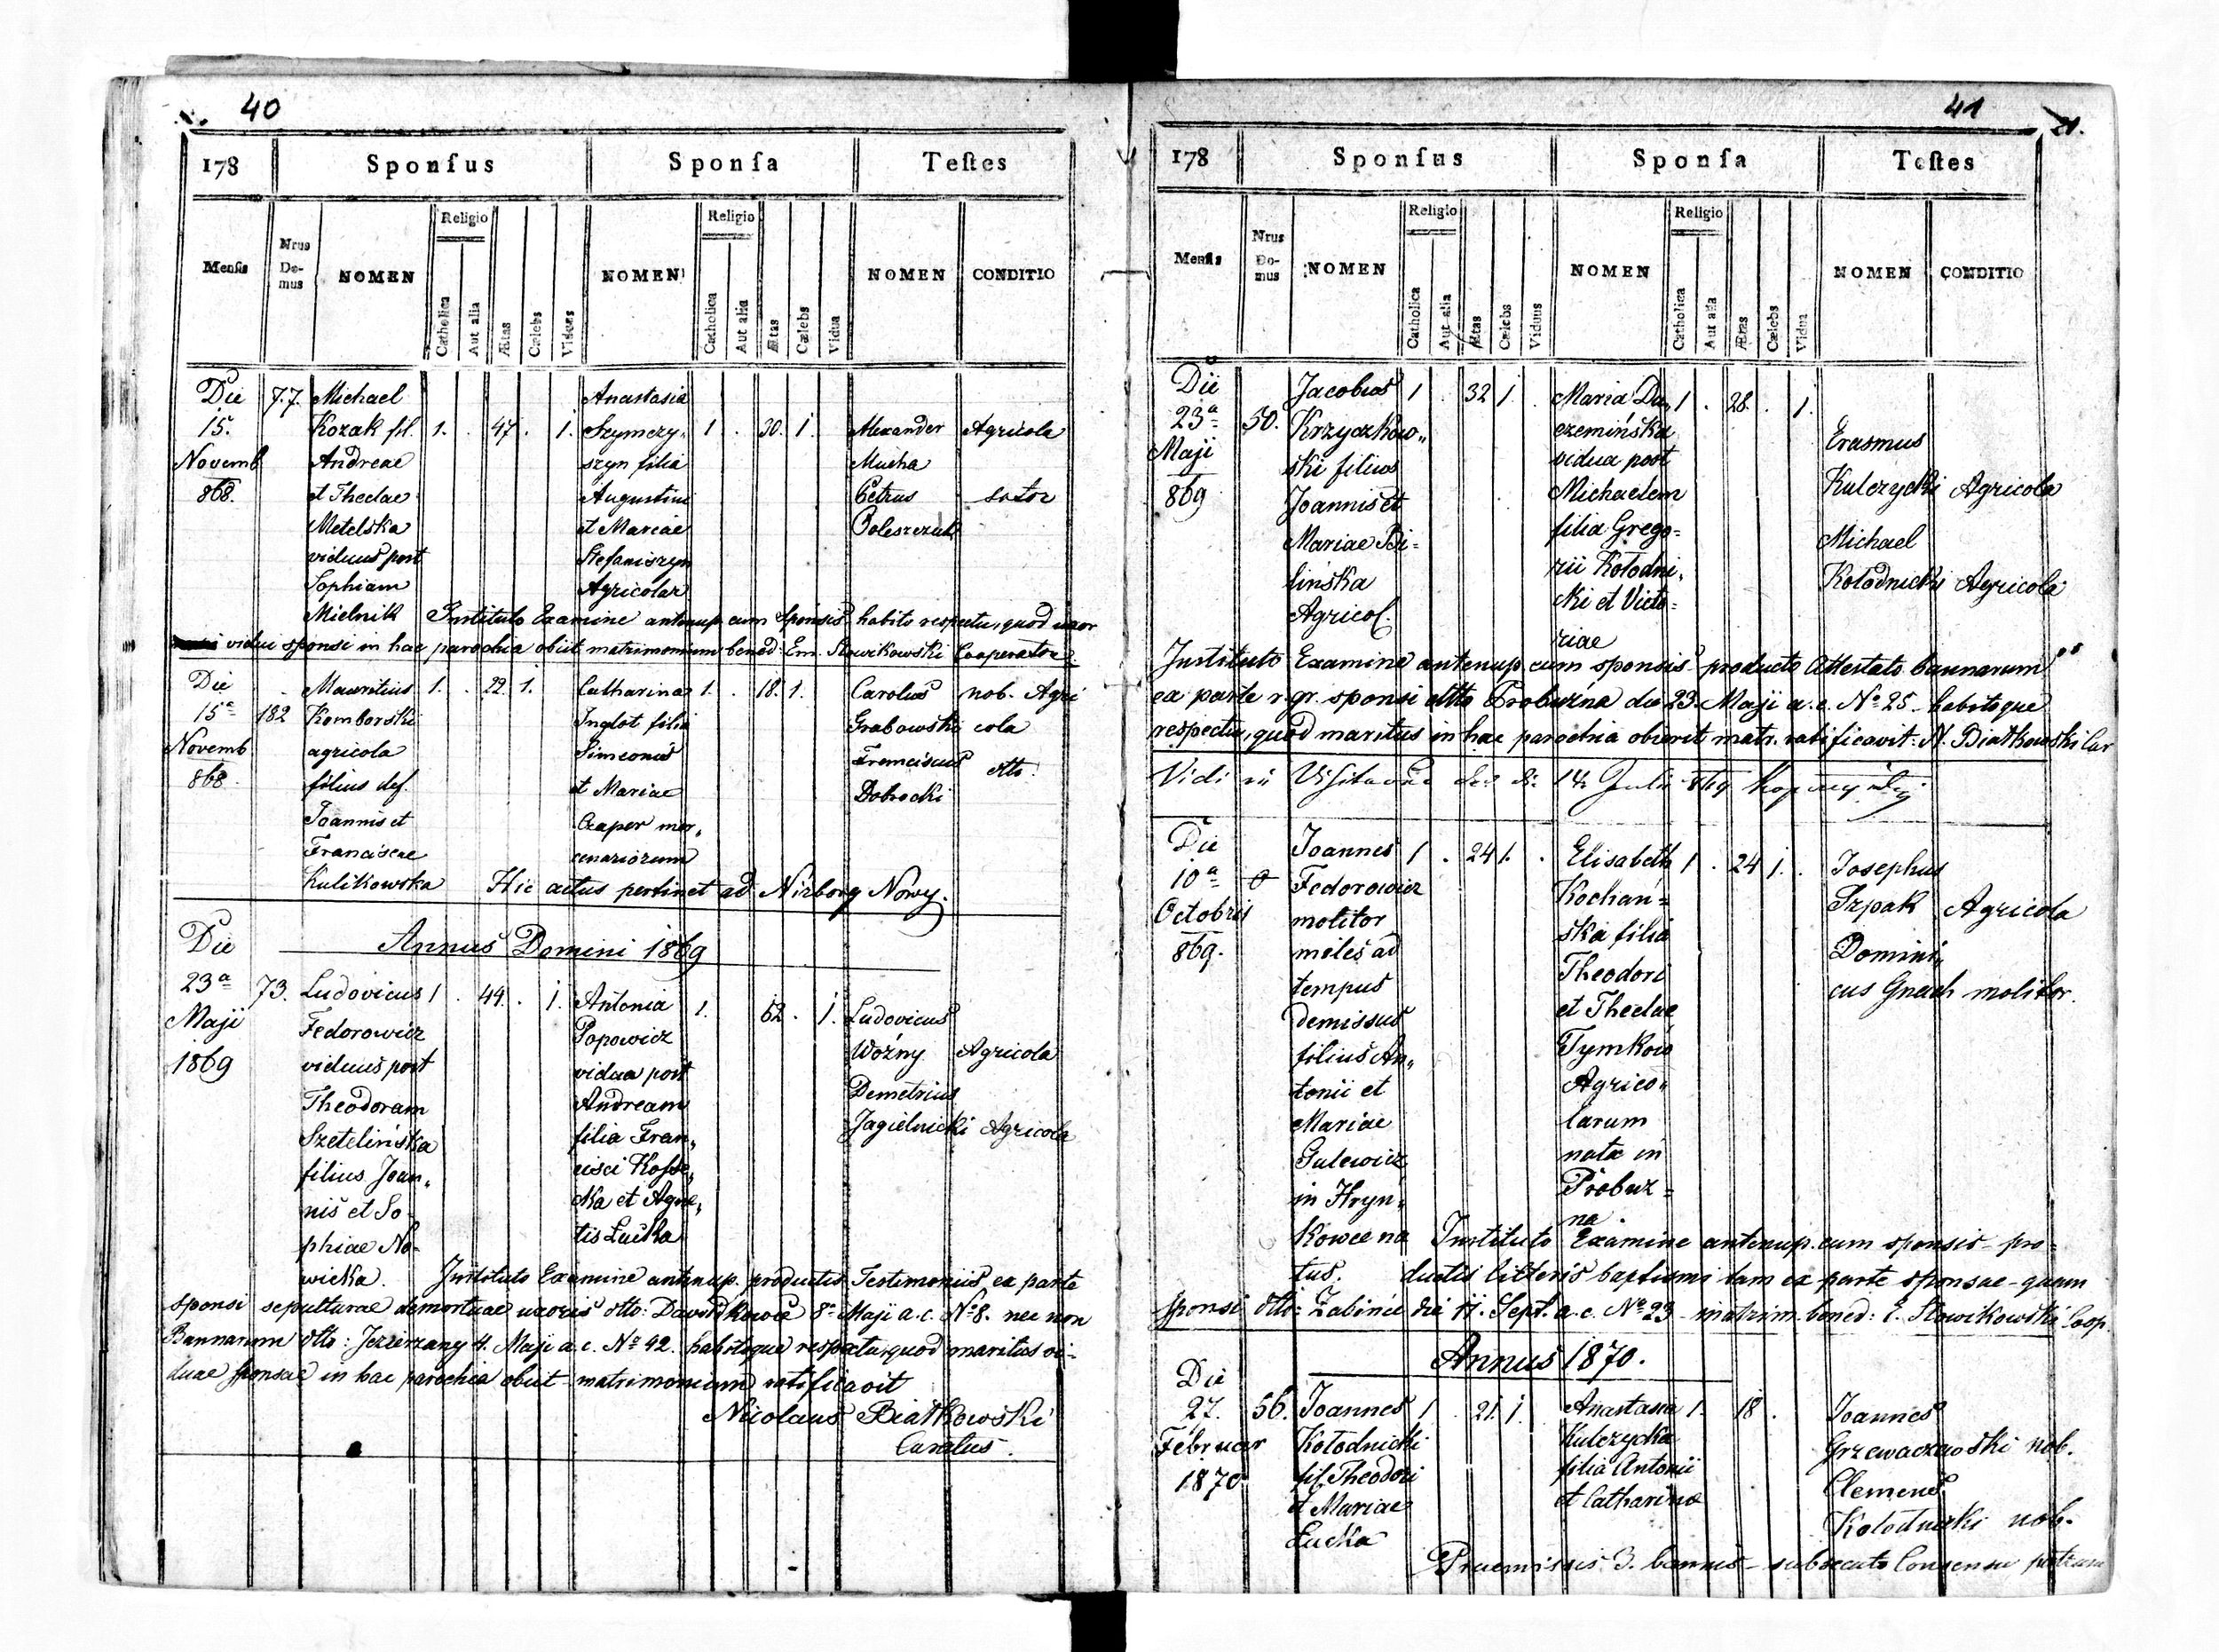 40
178 Sponſus Sponſa Teſtes
Religio Religio
Menſis Nrus Do- mus NOMEN Catholica Aut alia Ætas Cælebs Viduus NOMEN Catholica Aut alia Ætas Cælebs Vidua NOMEN CONDITIO
Die 77. Michael Anastasia
15. Kozak fil. 1. . 47 . 1. Szymczy„ 1 . 30. 1. Alexander Agricola
Novemb Andreae szyn filia Mucha
868. et Theclae Augustini Petrus sutor
Metelska et Mariae Boleszczuk
viduus post Stefaniszyn
Sophiam Agricolar
Mielnik Instituto Examine antenup. cum sponsis habito respectu, quod uxor
vidui sponsi in hac parochia obiit matrimonium bened: Em. Slowikowski Cooperator.
Die Mauritius 1. . 22. 1. Catharina 1. . 18. 1. Carolus nob. Agri
15ª 182 Komborski Inglot filia Grabowski cola
Novemb. agricola Simeonis Franciscus dtto.
868. filius def. et Mariae Dobrocki
Joannis et Czaper mer„
Franciscae cenariorum
Kulikowska Hic actus pertinet ad Niżborg Nowy.
Die Annus Domini 1869
23ª 73. Ludovicus 1 . 44. . 1. Antonia 1. 52. . 1. Ludovicus
Maji Fedorowicz Popowicz Woźny Agricola
1869 viduus post vidua post Demetrius
Theodoram Andream Jagielnicki Agricola
Szetelińska filia Fran„
filius Joan„ cisci Kosse„
nis et So- cka et Agne„
phiae No- tis Łucka
wicka. Instituto Examine antenup. productis Testimoniis ex parte
sponsi sepulturae demortuae uxoris dtto: Dawidkowce 8ª Maji a.c. Nº 8. nec non
Bannarum dtto: Jezierzany 4. Maji a.c. Nº 42. habitoque respectu, quod maritus vi-
duae sponsae in hac parochia obiit matrimonium ratificavit
Nicolaus Białkowski
Curatus.
41
21.
178 Sponſus Sponſa Teſtes
Religio Religio
Menſis Nrus Do- mus NOMEN Catholica Aut alia Ætas Cælebs Viduus NOMEN Catholica Aut alia Ætas Cælebs Vidua NOMEN CONDITIO
Die Jacobus 1 . 32 1. Maria Da„ 1 . 28. . 1.
23ª 50. Krzyczkow„ czemińska Erasmus
Maji ski filius vidua post Kulczycki Agricola
869 Joannis et Michaelem
Mariae Bi- filia Grego- Michael
lińska rii Kołodni„ Kołodnicki Agricola
Agricol. cki et Victo-
riae
Instituto Examine antenup. cum sponsis producto Attestato bannarum
ex parte r. gr. sponsi dtto Probużna die 23. Maji a.c. Nº 25 habitoque
respectu, quod maritus in hac parochia obierit matr. ratificavit: N. Białkowski Cur
Vidi in Visitatione 14 Julii 869
Die Joannes 1 . 24 1. . Elisabeth 1 . 24 1. . Josephus
10ª 0 Fedorowicz Kochań- Szpak Agricola
Octobris molitor ska filia Domini„
869. miles ad Theodori cus Gnach molitor.
tempus et Theclae
demissus Tymków
filius An„ Agrico„
tonii et larum
Mariae nata in
Gulewicz Probuż-
in Hryń- na.
kowce na Instituto Examine antenup. cum sponsis pro-
tus. ductis litteris baptismi tam ex parte sponsae quam
sponsi dtto: Żabińce die 11. Sept. a.c. Nº 23 matrim. bened: E. Slowikowski Coop.
Annus 1870.
Die
27. 56. Joannes 1 . 21. 1. Anastasia 1. . 18 . Joannes
Februar Kołodnicki Kulczycka Grzewaczewski nob.
1870 fil. Theodori filia Antonii Clemens
et Mariae et Catharinae Kołodnicki nob.
Łucka
Praemissis 3. bannis subsecuto Consensu